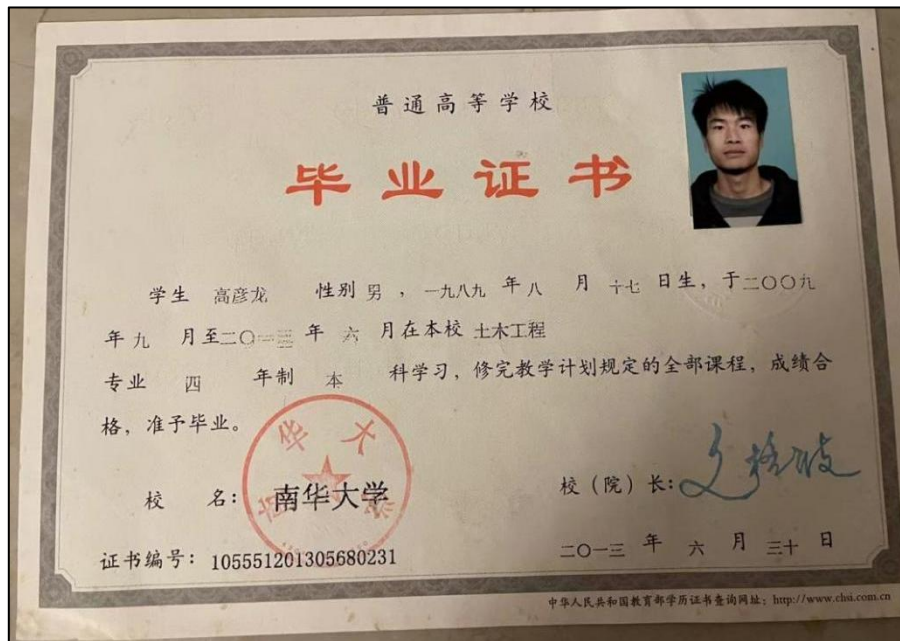 普通高等学校
毕业证书
学生 高彦龙 性别 男 ，一九八九 年 八 月 十七 日生，于二〇〇九
年 九 月至二〇一三 年 六 月在本校 土木工程
专业 四 年制 本 科学习，修完教学计划规定的全部课程，成绩合
格，准予毕业。
南华大学
校 名：南华大学
校（院）长：文格波
证书编号：105551201305680231
二〇一三 年 六 月 三十 日
中华人民共和国教育部学历证书查询网址：http://www.chsi.com.cn